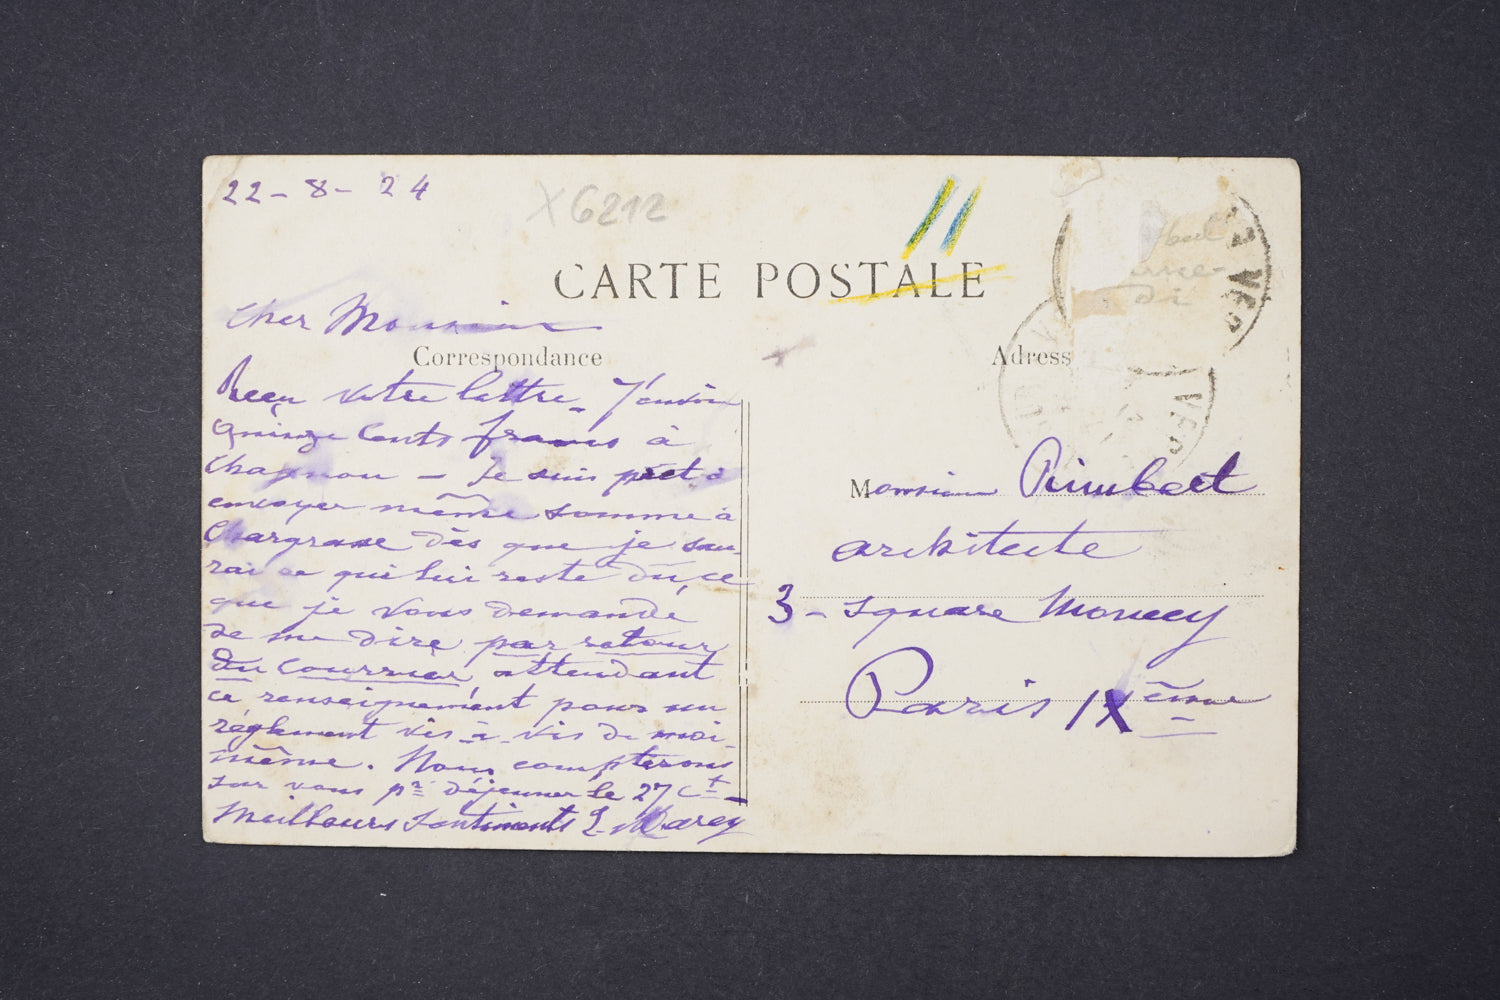 22-8-24
X6212
11
CARTE POSTALE
Cher Monsieur
Correspondance
Adress
Reçu votre lettre. J'envoie
quinze cents francs à
Chagnon - Je suis prêt à
envoyer même somme à
Chargrasse dès que je sau-
rai ce qui lui reste dû, ce
que je vous demande
de me dire par retour
du courrier attendant
ce renseignement pour un
règlement vis-à-vis de moi-
même. Nous compterons
sur vous pr déjeuner le 27 ct -
Meilleurs sentiments L. Marey
Monsieur Rimbert
architecte
3 - square Moncey
Paris IXème